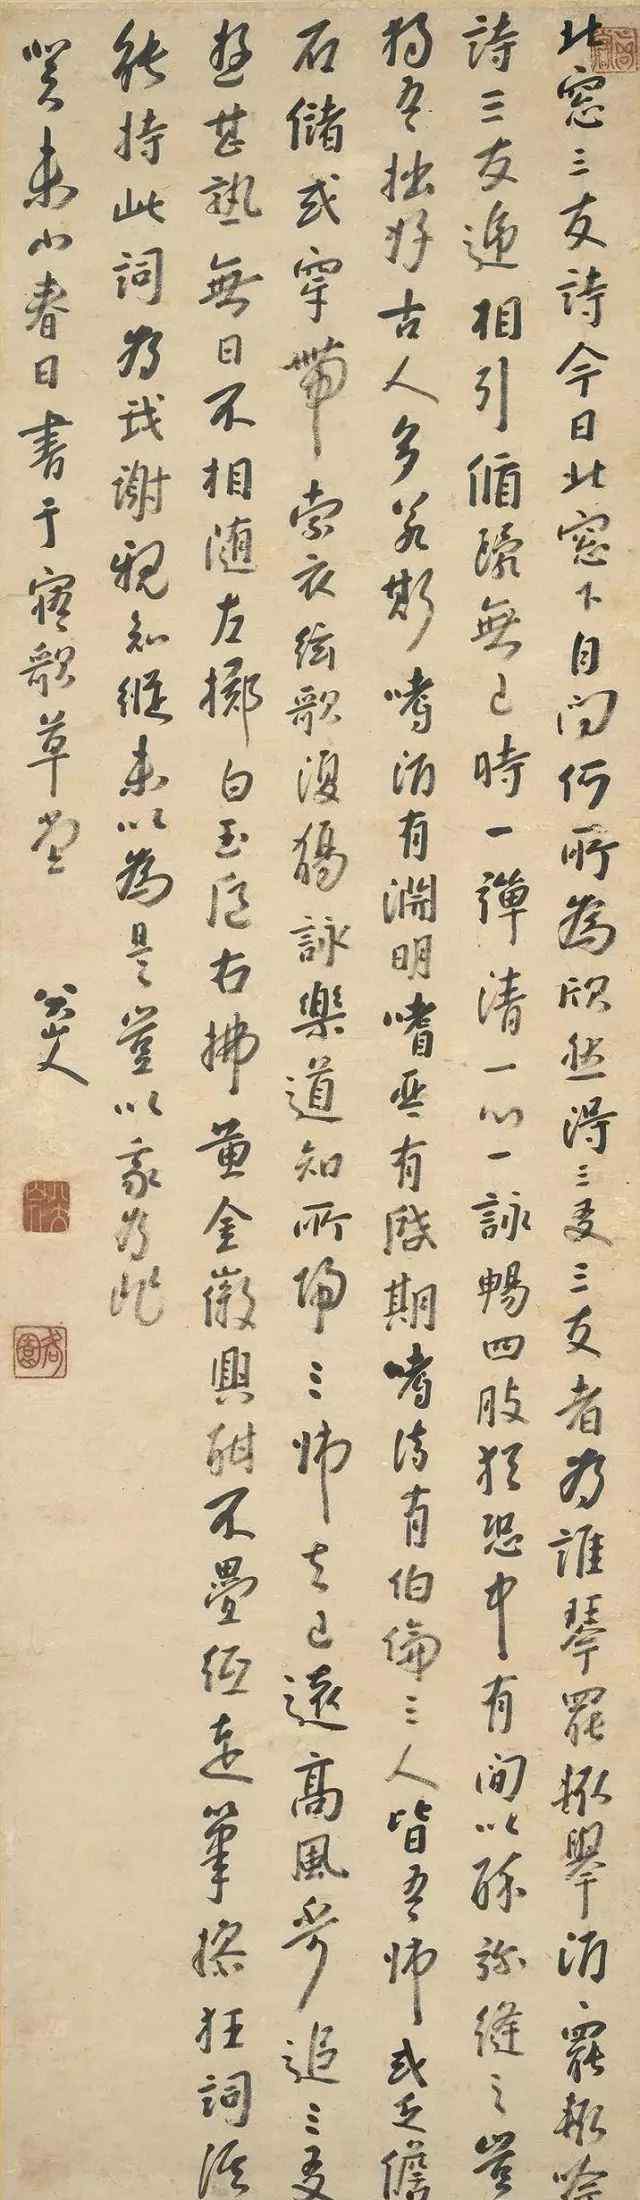 北窓三友詩今日北窓下自问何所為欣然得三友三友者为誰琴罷輒舉酒〻罷輒吟
詩三友遞相引循環無已時一彈清一心一詠暢四肢猶恐中有间以酔弥縫之豈
獨吾拙好古人多若斯嗜酒有淵明嗜琴有啟期嗜詩有伯倫三人皆吾師或乏儋
石儲或穿帶索衣弦歌復觴詠樂道知所歸三師去已遠高風不可追三友
遊甚熟無日不相隨左擲白玉卮右拂黃金徽興酣不疊紙走筆操狂詞誰
能持此詞为我謝親知縱未以為是豈以我为非
癸未小春日書于寤歌草堂
八大山人